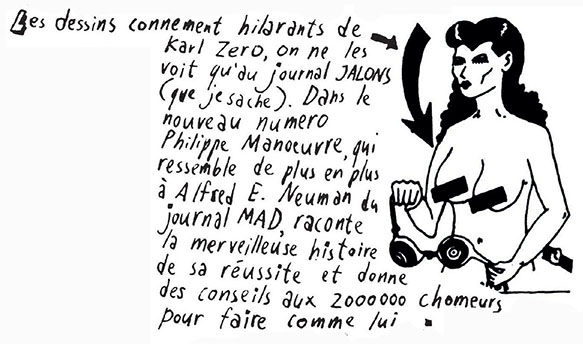 Les dessins connement hilarants de
Karl Zero, on ne les
voit qu'au journal JALONS
(que je sache). Dans le
nouveau numero
Philippe Manœuvre, qui
ressemble de plus en plus
à Alfred E. Neuman du
journal MAD, raconte
la merveilleuse histoire
de sa réussite et donne
des conseils aux 2000000 chomeurs
pour faire comme lui.